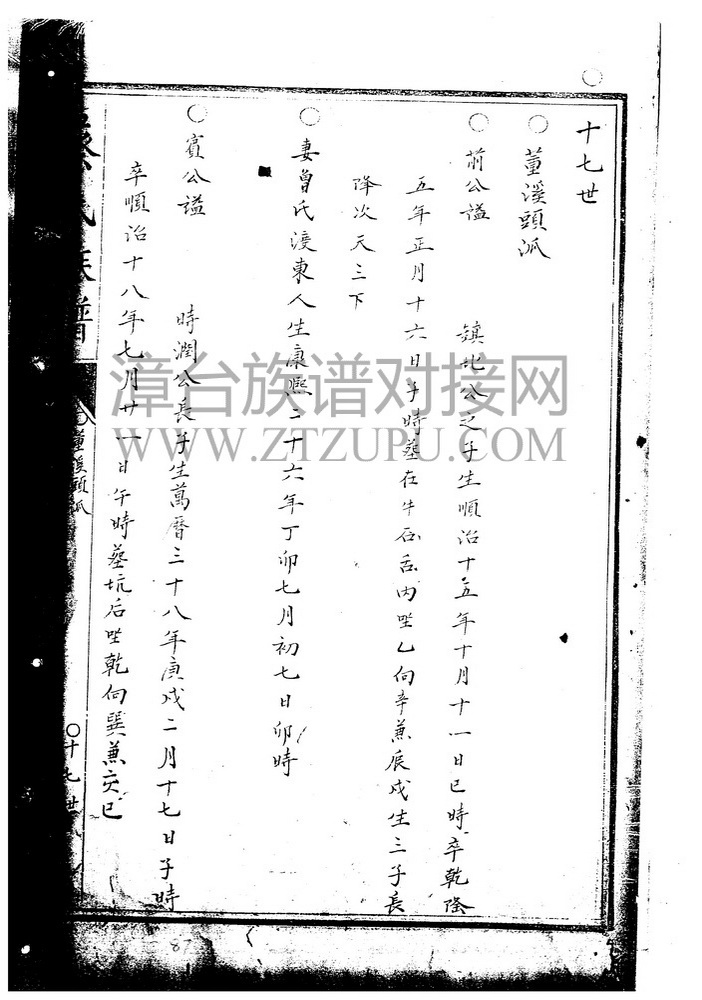 十七世
○董溪頭派
○前公謚 鎮北公之子生順治十五年十月十一日巳時卒乾隆
五年正月十六日子時墓在牛石舌內坐乙向辛兼辰戌生三子長
降次天三下
○妻曾氏渡東人生康熙二十六年丁卯七月初七日卯時
○賓公謚 時潤公長子生萬曆三十八年庚戌二月十七日子時
卒順治十八年七月廿一日午時墓坑后坐乾向巽兼亥巳
氏族譜
董溪頭派
○十七世
87
漳台族谱对接网
WWW.ZTZUPU.COM